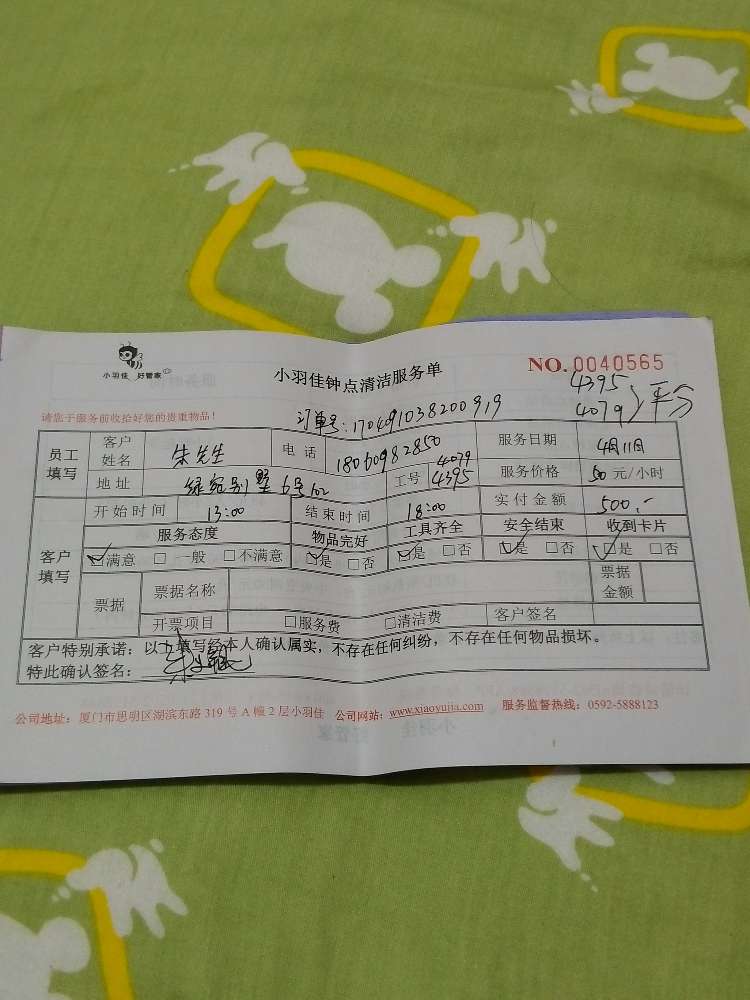 小羽佳 好管家
小羽佳钟点清洁服务单
NO. 0040565
请您于服务前收拾好您的贵重物品！
订单号:1704091038200919
4395
4079 平分
员工填写 客户姓名 朱先生 电话 18060982850 服务日期 4月11日
地址 绿苑别墅6号102 工号 4079 4395 服务价格 50 元/小时
客户填写 开始时间 13:00 结束时间 18:00 实付金额 500.-
服务态度 物品完好 工具齐全 安全结束 收到卡片
☑满意 □一般 □不满意 ☑是 □否 ☑是 □否 ☑是 □否 ☑是 □否
票据 票据名称 票据金额
开票项目 □服务费 □清洁费 客户签名
客户特别承诺：以上填写经本人确认属实，不存在任何纠纷，不存在任何物品损坏。
特此确认签名：
公司地址：厦门市思明区湖滨东路 319 号 A 幢 2 层小羽佳 公司网站：www.xiaoyujia.com 服务监督热线：0592-5888123